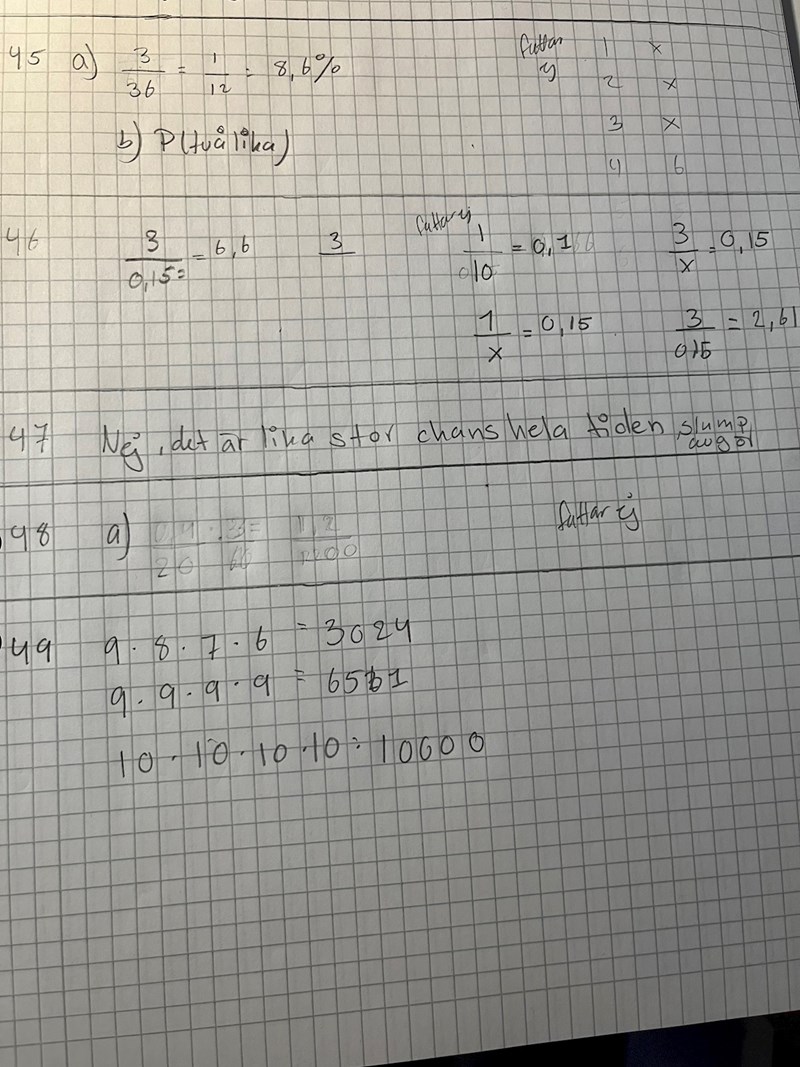 45 a) 3/36 = 1/12 = 8,6%
fattar ej
1 x
2 x
3 x
4 6
b) P(två lika)
46 3/0,15= = 6,6 3
fattar ej
1/10 = 0,1 3/x = 0,15
1/x = 0,15 3/0,15 = 2,61
47 Nej, det är lika stor chans hela tiden, slump avgör
48 a) 0,4/20 · 3/60 = 1,2/1200 fattar ej
49 9 · 8 · 7 · 6 = 3024
9 · 9 · 9 · 9 = 6561
10 · 10 · 10 · 10 = 10000